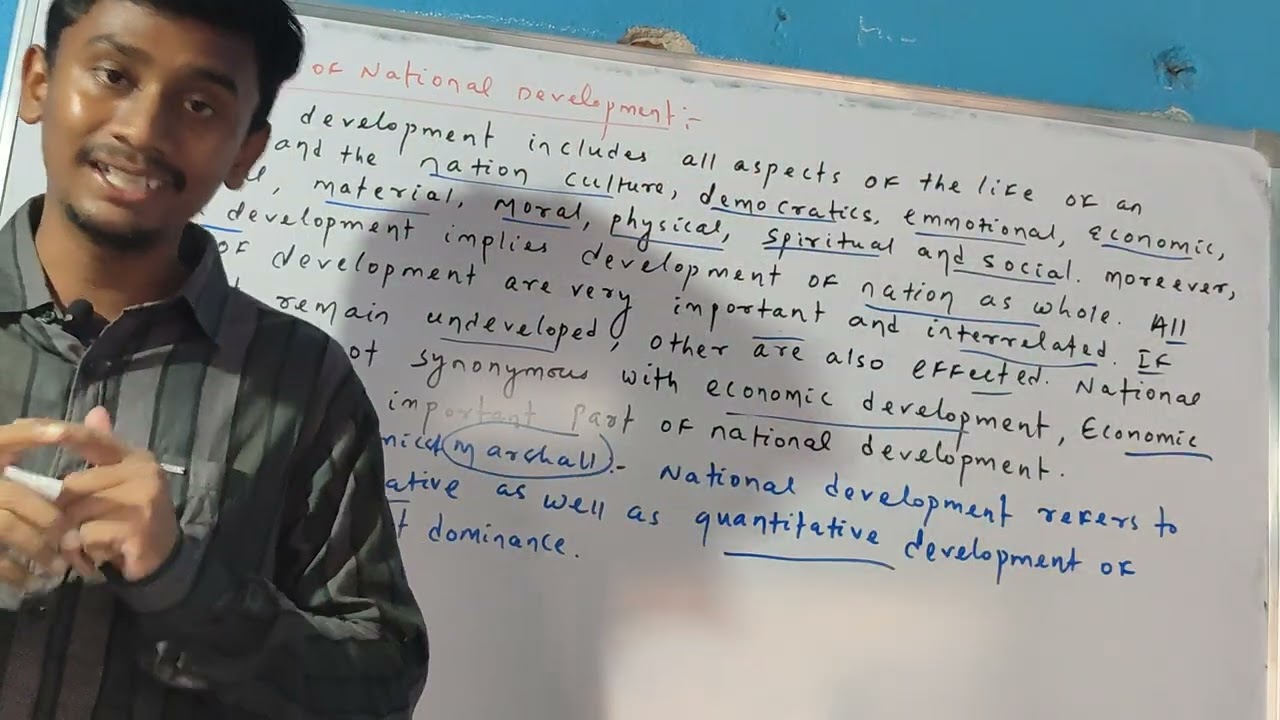 OF National Development:-
development includes all aspects of the life of an
and the nation culture, democratics, emmotional, Economic,
material, Moral, physical, spiritual and social. moreever,
development implies development of nation as whole. All
of development are very important and interrelated. If
remain undeveloped, other are also effected. National
synonymous with economic development, Economic
important part of national development.
Marshall:- National development refers to
as well as quantitative development of
dominance.